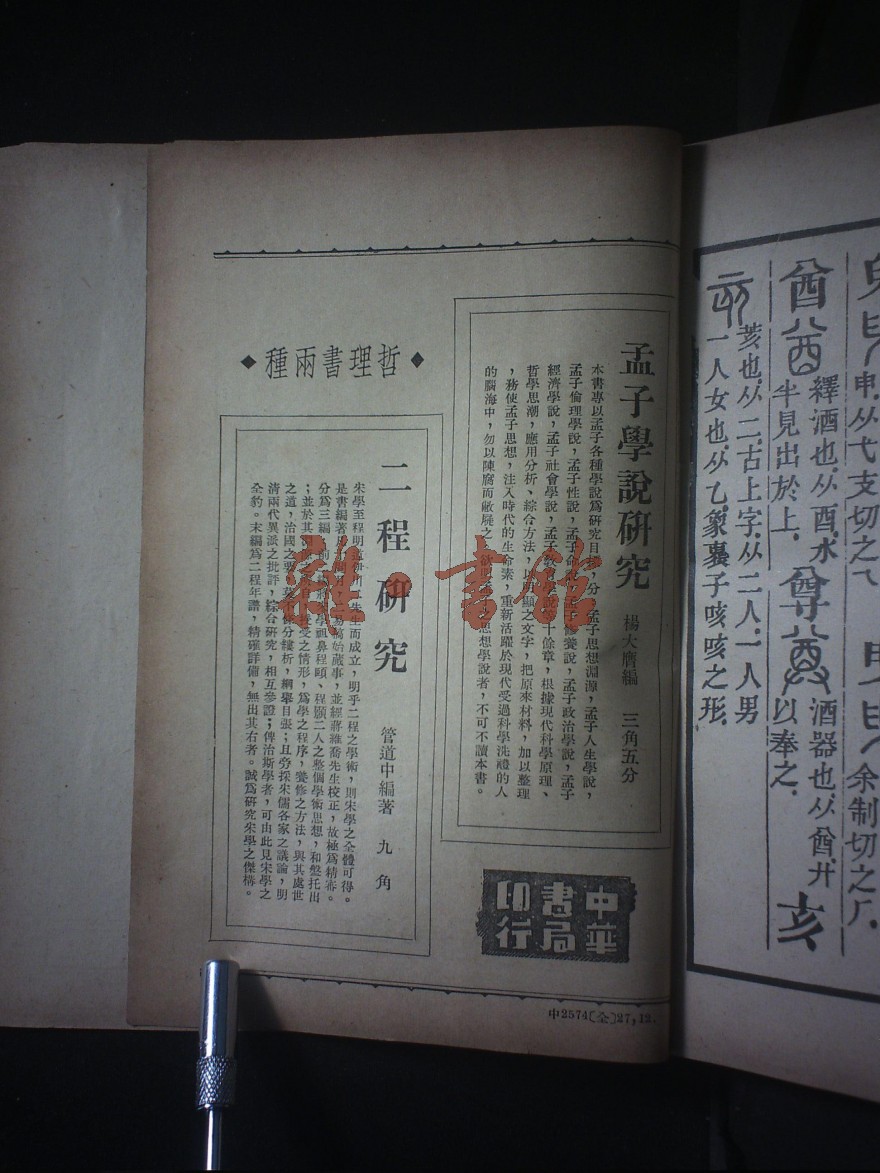 孟子學說研究
楊大膺編　三角五分
本書專以孟子各種學說爲研究目標，分孟子思想淵源，孟子人生學說，
孟子倫理學說，孟子性說，孟子命說，孟子修養說，孟子政治學說，孟子
經濟學說，孟子社會學說，孟子教學說十餘章，根據現代科學原理、
哲學思潮，應用分析、綜合方法，以明顯之文字，把原來材料，加以整理
，務使孟子思想，注入時代的生命素，重新活躍於現代受過科學洗禮的人
的腦海中，勿以陳腐而敝屣之。欲明孟子思想學說者，不可不讀本書。
◆哲理書兩種◆
二程研究
管道中編著　九角
宋學至程明道伊川二先生而成立，明乎二程之學術，則宋學之全體可得。
是書編著易稿始蕆事，並經蔣維喬先生校正，故極爲精審。
分爲三編，前學祖鼻程頤、程顥二人之整個學術思想，和盤托出
；並於其授受之情形，爲學之程序，養修之方法，與其處世
之道，治國之要，分縷析，綱舉目張；且旁採朱儒各家之議論，明
清兩代異派之批評，綜合研究，相互參證；俾治斯學者，可由此見宋學之
全豹。末編爲二程年譜，精確詳備，無出其右者。誠爲研究宋學之傑構。
中華書局印行
中2574〔全〕27,12.
申.从弋支切之
余制切之厂.
酋
繹酒也.从酉.水
半見出於上.
尊
酒器也.从酋.廾
以奉之.
亥
荄也.从二.古上字.从二人.一人男
一人女也.从乙.象裹子咳咳之形.
雜·書館